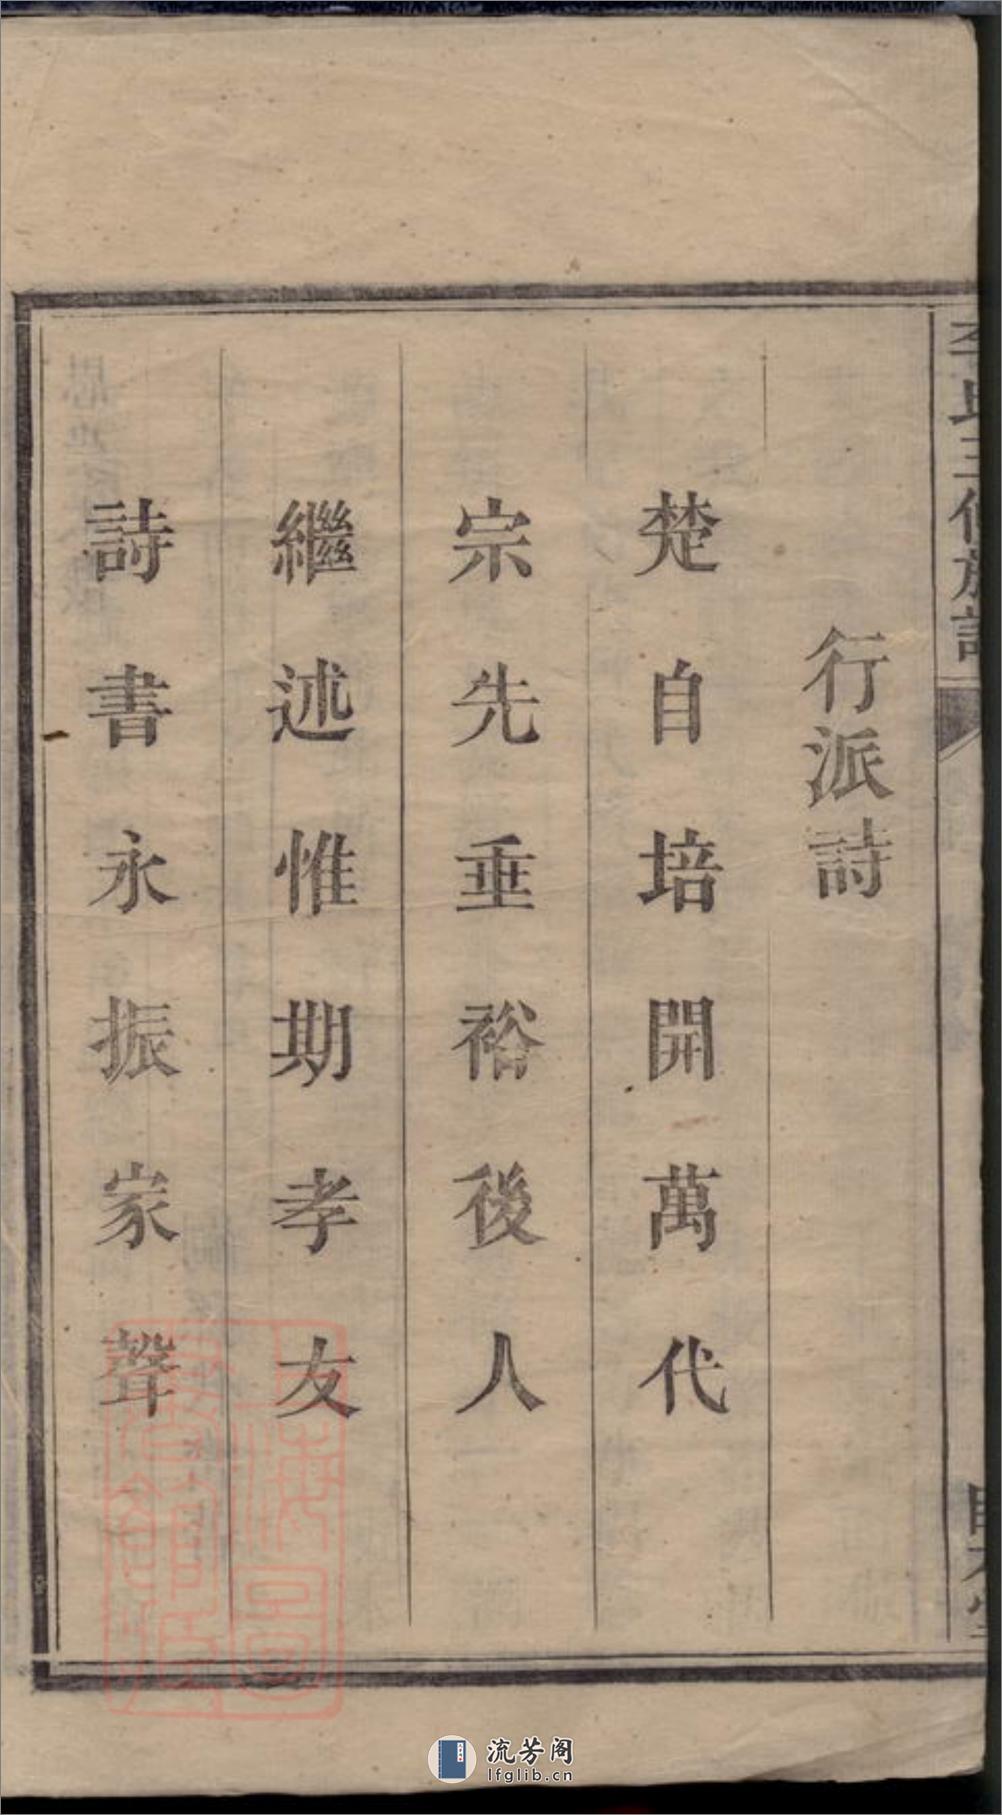 李氏三修族譜
行派詩
楚自培開萬代
宗先垂裕後人
繼述惟期孝友
詩書永振家聲
流芳阁
lfglib.cn